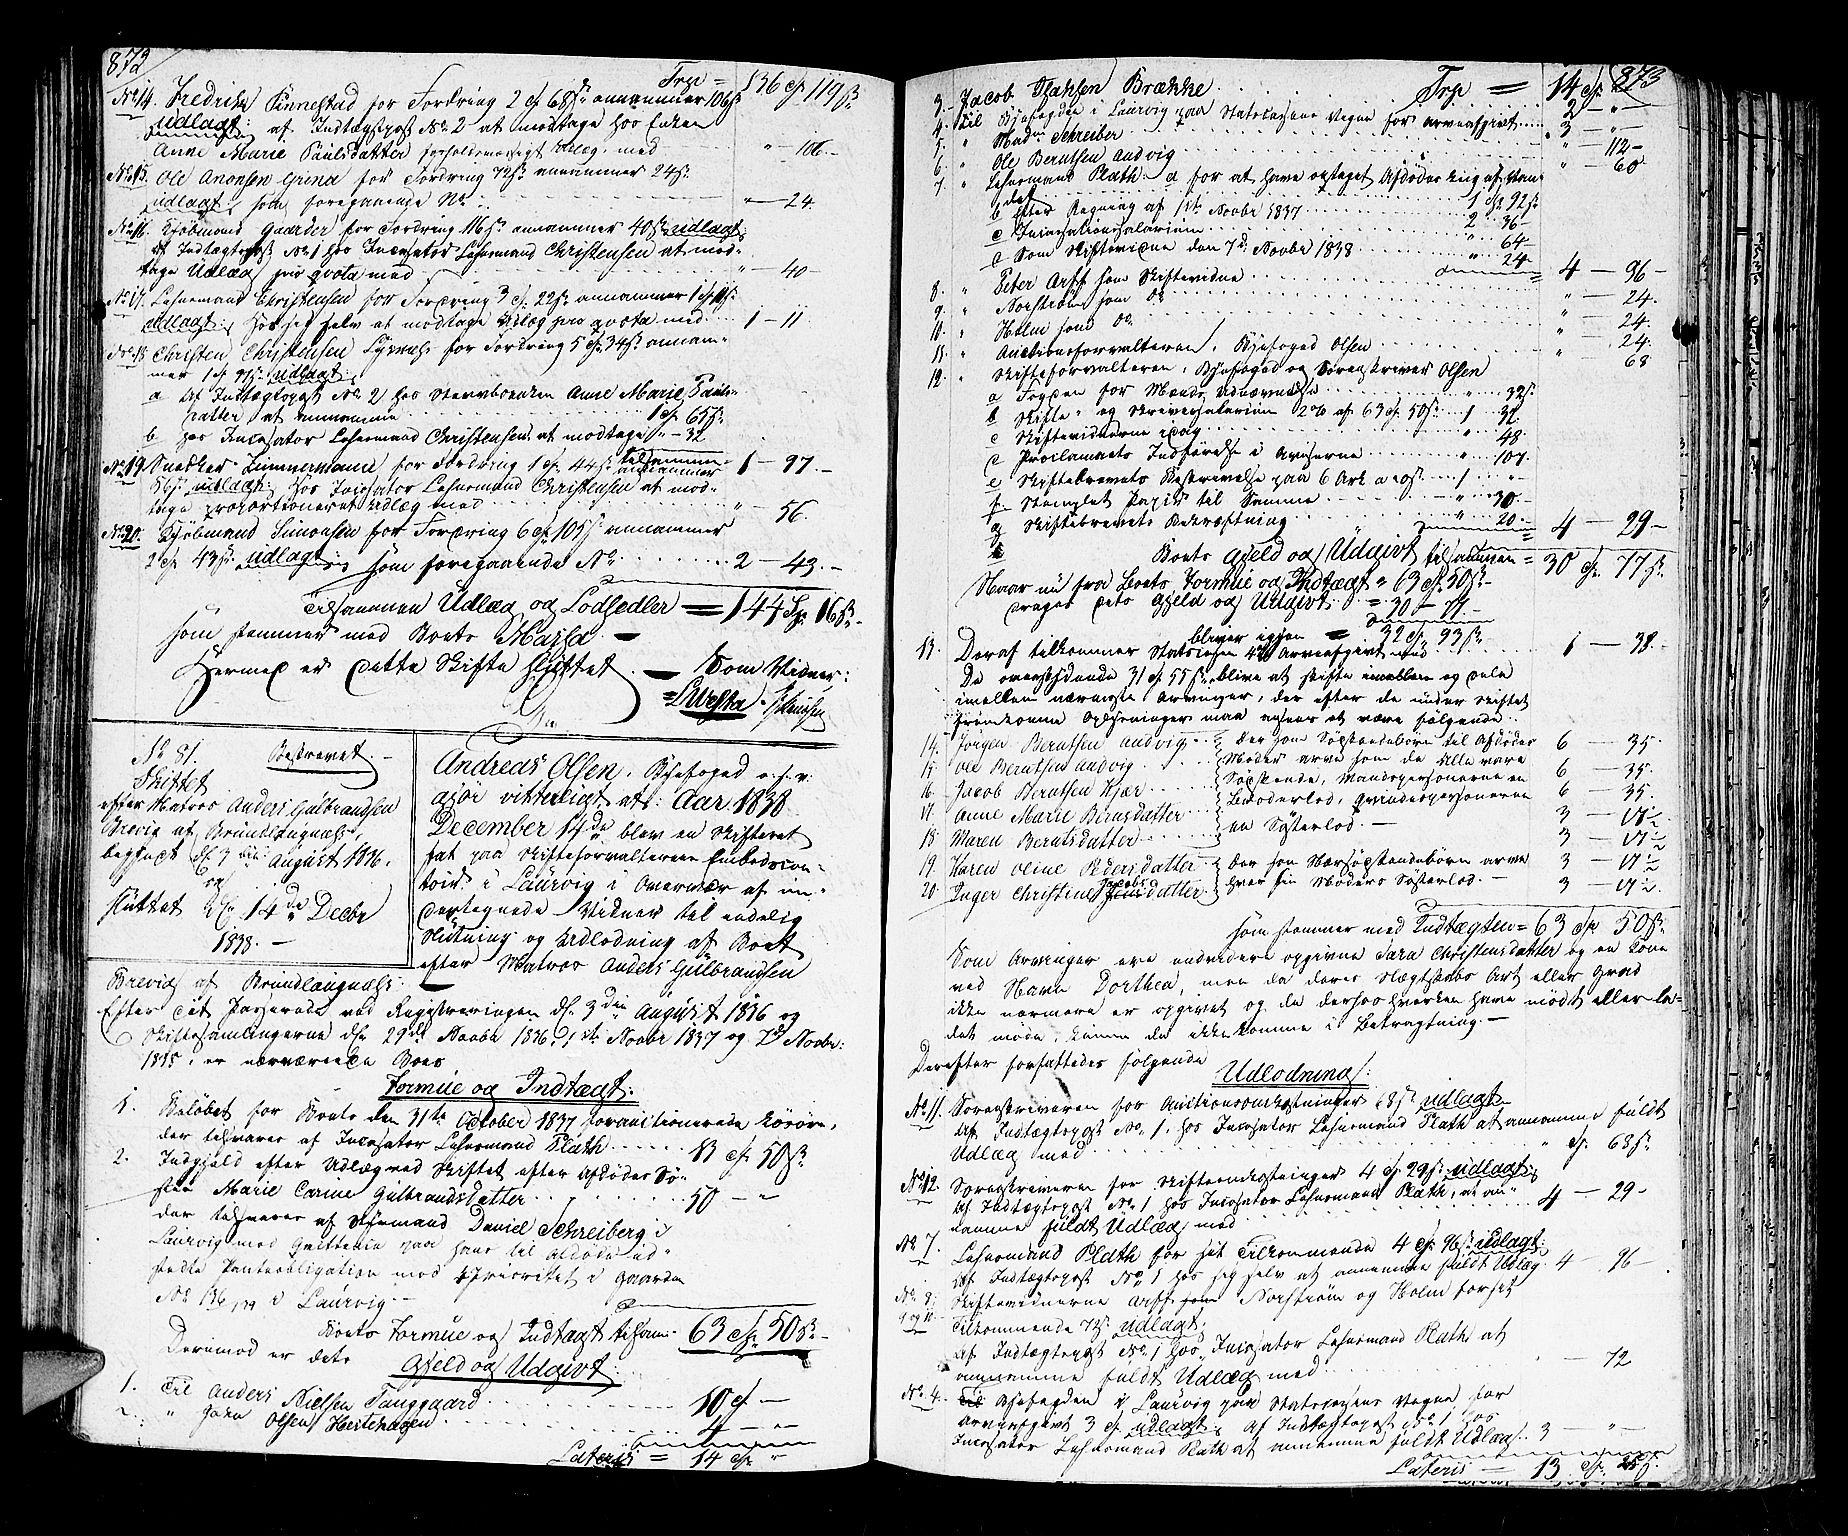 872
Trp = 136 Sp 119 ß
No 14. Fredrik Kinnestad for Fordring 2 Sp 68 ß annammer 106 ß
udlagt af Indtægtspost No 2 at modtage hos Enken
Anne Marie Paulsdatter forholdsmæssigt Udlæg med " — 106 —
No 15. Ole Anonsen Grina for Fordring 72 ß annammer 24 ß
udlagt, som foregaaende No " — 24
No 16. Kjøbmand Gaarder for Fordring 116 ß annammer 40 ß udlagt,
af Indtægtspost No 1 hos Incasator Lehnsmand Christensen at mod-
tage Udlæg pro qvota med " — 40 —
No 17. Lehnsmand Christensen for Fordring 3 Sp 22 ß annammer 1 Sp 11 ß
udlagt, hos sig selv at modtage Udlæg pro qvota med 1 — 11
No 18 Christen Christensen for Fordring 5 Sp 34 ß annam-
mer 1 Sp 97 ß udlagt,
a Af Indtægtspost No 2 hos Anne Marie Pauls-
datter at annamme 1 Sp 65 ß
b hos Incasator Lehnsmand Christensen at modtage " — 32
tilsammen 1 — 97. —
No 19. Snedker Zimmermann for Fordring 1 Sp 44 ß annammer
56 ß udlagt, hos Incasator Lehnsmand Christensen at mod-
tage proportioneret Udlæg med " — 56
No 20. Kjøbmand Simonsen for Fordring 6 Sp 105 ß annammer
2 Sp 43 ß udlagt, som foregaaende No 2 — 43. —
Tilsammen Udlæg og Lodsedler = 144 Sp 16 ß
som stemmer med Boets Massa. —
Hermed er dette Skifte sluttet. — Som Vidner:
No 81. Beskrevet
Skiftet
efter Matros Anders Gulbrandsen
Brevig af Brunlaugnæs,
begyndt d. 3die August 1836,
og
sluttet d. 14de Decbr
1838. —
Andreas Olsen, Byefoged o. s. v.
gjør vitterligt at: Aar 1838
December 14de blev en Skifteret
sat paa Skifteforvalterens Embedscon-
toir i Laurvig i Overvær af un-
dertegnede Vidner til endelig
Slutning og Udlodning af Boet
efter Matros Anders Gulbrandsen
Brevig af Brunlaugnæs.
Efter det Passerede ved Registreringen d. 3die August 1836 og
Skiftesamlingerne d. 29de Novbr 1836, 1ste Novbr 1837 og 7de Novbr
er nærværende Boes
Formue og Indtægt:
1. Beløbet for Boets den 31te October 1837 forauctionerede Løsøre,
der tilsvares af Incasator Lehnsmand Plath 13 Sp 50 ß
2. Indgjeld efter Udlæg ved Skiftet efter Afdødes Sø-
ster Marie Carine Gulbrandsdatter 50 — "
der tilsvares af Styrmand Daniel Schreiberg i
Laurvig mod paa hans til Afdøde ud-
stedte Panteobligation med Prioritet i Gaarden
No 136 i Laurvig. —
Boets Formue og Indtægt tilsam. 63 Sp 50 ß —
Derimod er dets
Gjeld og Udgivt:
1. Til Anders Nielsen Tanggaard 10 Sp —
2. " Olsen Hertehagen 4 — "
Lateris = 14 Sp "
873
Trp = 14 Sp
3. Jacob Olahsen Brække 2 — "
4. Til Byefogden i Laurvig paa Statscassens Vegne for Arveafgivt 3 — "
5. " Mad. Schreiber " — 112 —
6. " Ole Berntsen Andvig " — 60
7. " Lehnsmand Plath: a for at have opsøget Afdødes Lig af Van-
det 1 Sp 92 ß
b Efter Regning af 1ste Novbr 1837 2 36 —
c Incasationssalarium " 64 —
d Som Skiftevidne den 7de Novbr 1838 " 24 —
4 — 96 —
8. " Peter Arff som Skiftevidne " — 24.
9. " Norstrøm som Do " — 24.
10. " Holm som Do " — 24
11. " Auctionsforvalteren, Byefoged Olsen " — 68
12. " Skifteforvalteren, Byefoged og Sorenskriver Olsen
a Fogden for Mænds Udnævnelse " 32 ß
b Skifte- og Skriversalarium 2 % af 63 Sp 50 ß 1 32
c Skiftevidnerne idag " 48
d Proclamaets Indførelse i Aviserne " 107
e Skiftebrevets Beskrivelse paa 6 Ark a 20 ß 1 "
f Stemplet Papir til Samme " 30
g Skiftebrevets Bekræftning " 20 4 — 29 —
Boets Gjeld og Udgivt tilsammen = 30 Sp 77 ß
Naar nu fra Boets Formue og Indtægt = 63 Sp 50 ß —
drages dets Gjeld og Udgivt = 30 — 77. —
bliver igjen = 32 Sp 93 ß
13. Deraf tilkommer Statscassen 4 % Arveafgivt med 1 — 38. —
De overskydende 31 Sp 55 ß blive at skifte imellem og dele
imellem nærmeste Arvinger, der efter de under Skiftet
fremkomne Oplysninger maa ansees at være følgende
14. Jørgen Berntsen Andvig 6 — 35.
15 Ole Berntsen Andvig 6 — 35.
16 Jacob Berntsen Kjær 6 — 35
17 Anne Marie Berntsdatter 3 — 17 ½
18 Maren Berntsdatter 3 — 17 ½
der som Søskendebørn til Afdødes
Moder arve som de Alle vare
Søskende, Mandspersonerne en
Broderlod, Qvindespersonerne
en Søsterlod —
19 Karen Oline Pedersdatter 3 — 17 ½
20 Inger Christine Jacobsdatter 3 — 17 ½
der som Næstsøskendebørn arve
hver sin Moders Søsterlod. —
som stemmer med Indtægten = 63 Sp 50 ß
Som Arvinger ere endvidere opgivne Sara Christensdatter og en Kone
ved Navn Dorthea, men da deres Slægtskabs Art eller Grad
ikke nærmere er opgivet og da derhos hverken have mødt eller la-
det møde, kunne de ikke komme i Betragtning. —
Derefter forfattedes følgende
Udlodning:
No 11. Sorenskriveren for Auctionsomkostninger 68 ß udlagt
Af Indtægtspost No 1, hos Incasator Lehnsmand Plath at annamme fuldt
Udlæg med " Sp 68 ß
No 12. Sorenskriveren for Skifteomkostninger 4 Sp 29 ß udlagt,
Af Indtægtspost No 1 hos Incasator Lehnsmand Plath, at an-
namme fuldt Udlæg med 4 — 29 —
No 7. Lehnsmand Plath for sit Tilkommende 4 Sp 96 ß udlagt,
Af Indtægtspost No 1 hos sig selv at annamme fuldt Udlæg 4 — 96 —
No 8, Skiftevidnerne Arff, Norstrøm og Holm for sit
9 og 10 Tilkommende 72 ß udlagt,
Af Indtægtspost No 1 hos Incasator Lehnsmand Plath at
annamme fuldt Udlæg med — 72
No 4. Byefogden i Laurvig paa Statscassens Vegne for
Arveafgivt 3 Sp udlagt, Af Indtægtspost No 1 hos
Incasator Lehnsmand Plath at annamme fuldt Udlæg 3 — " —
Lateris = 13 Sp